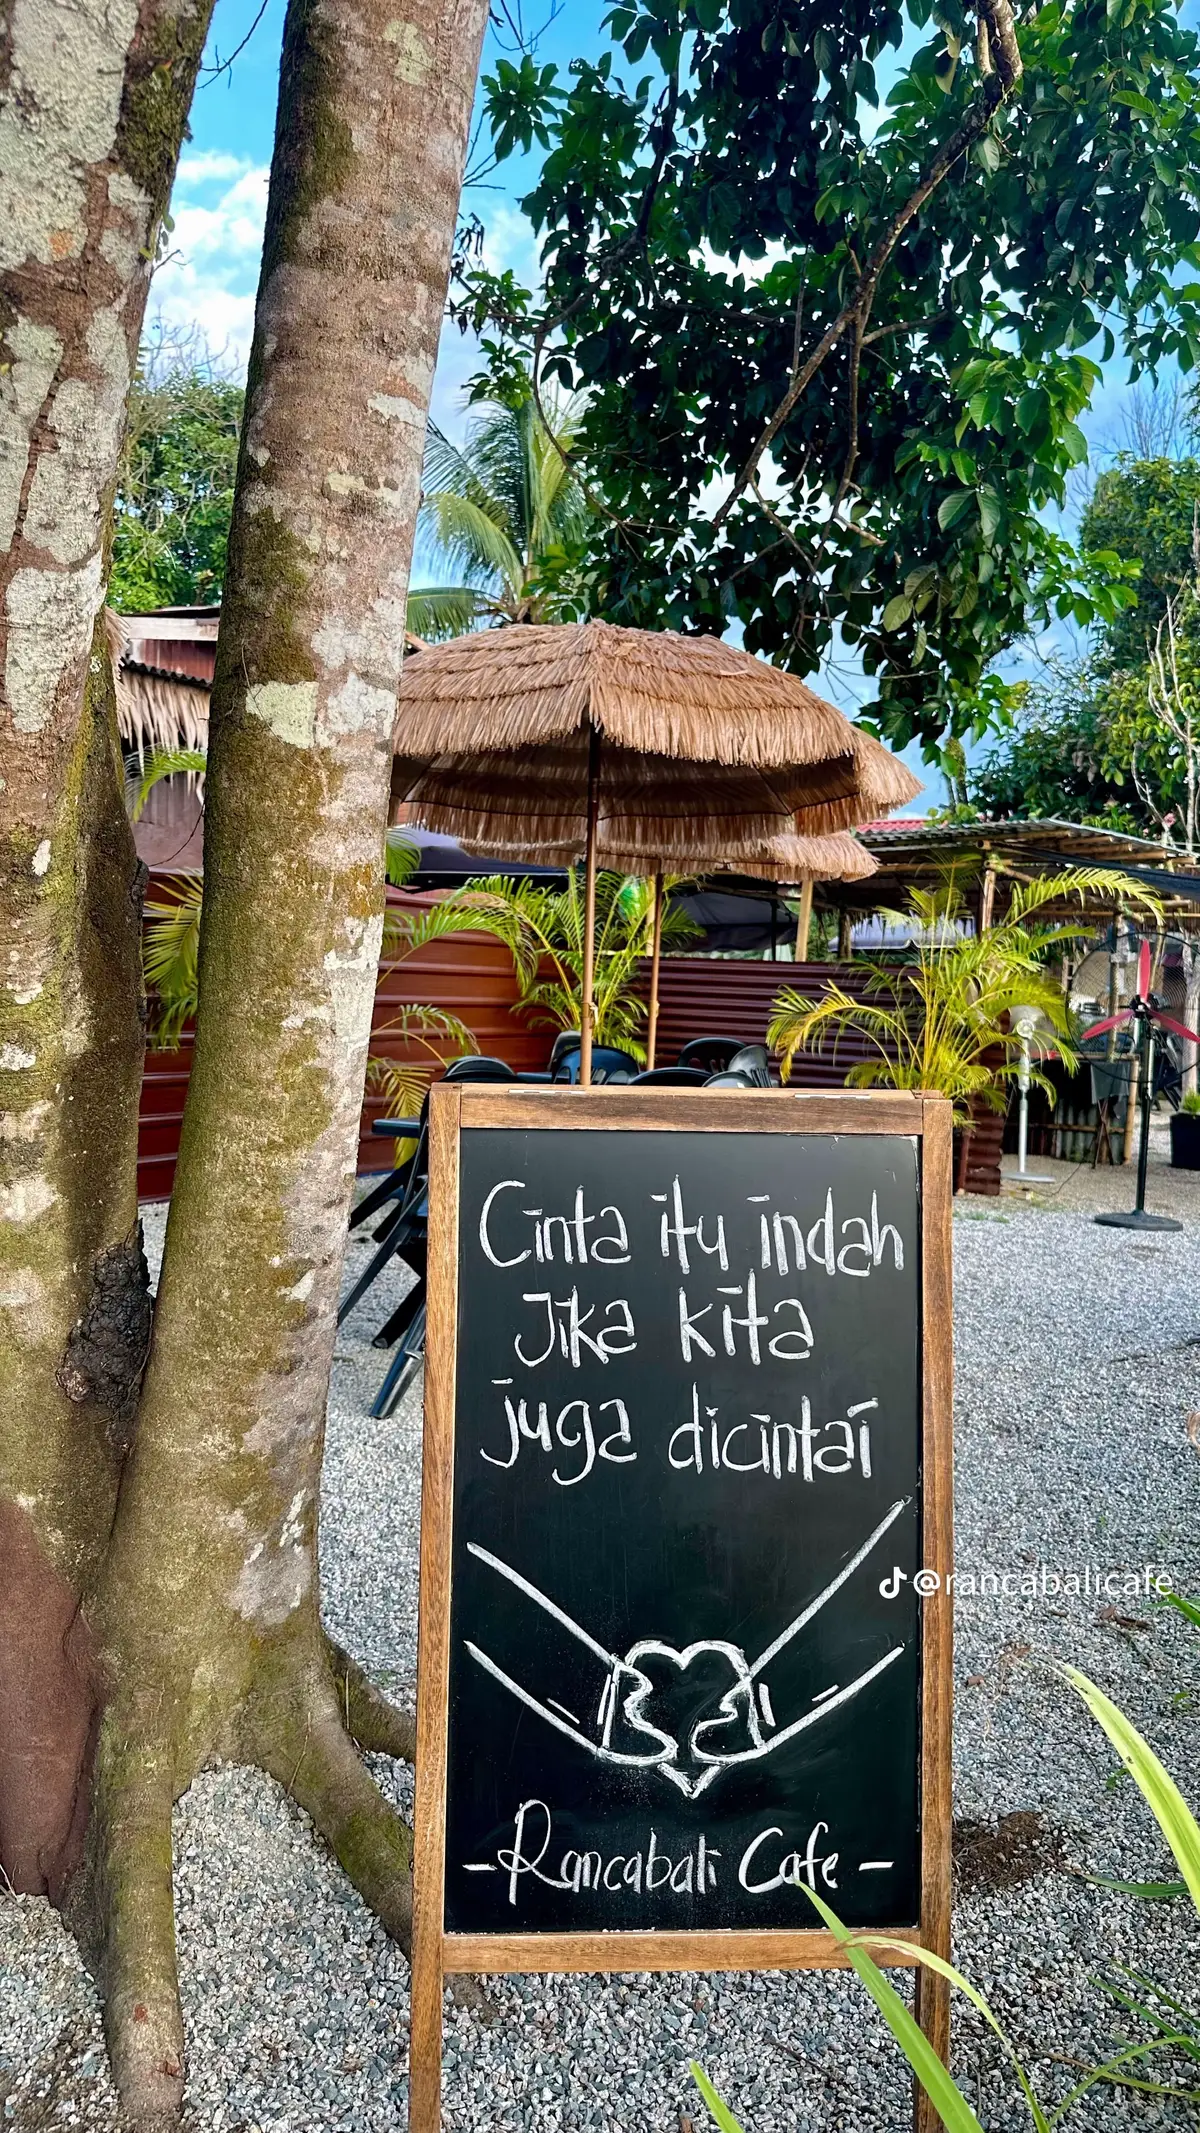 Cinta itu indah
Jika kita
juga dicintai
@rancabalicafe
- Rancabali Cafe -